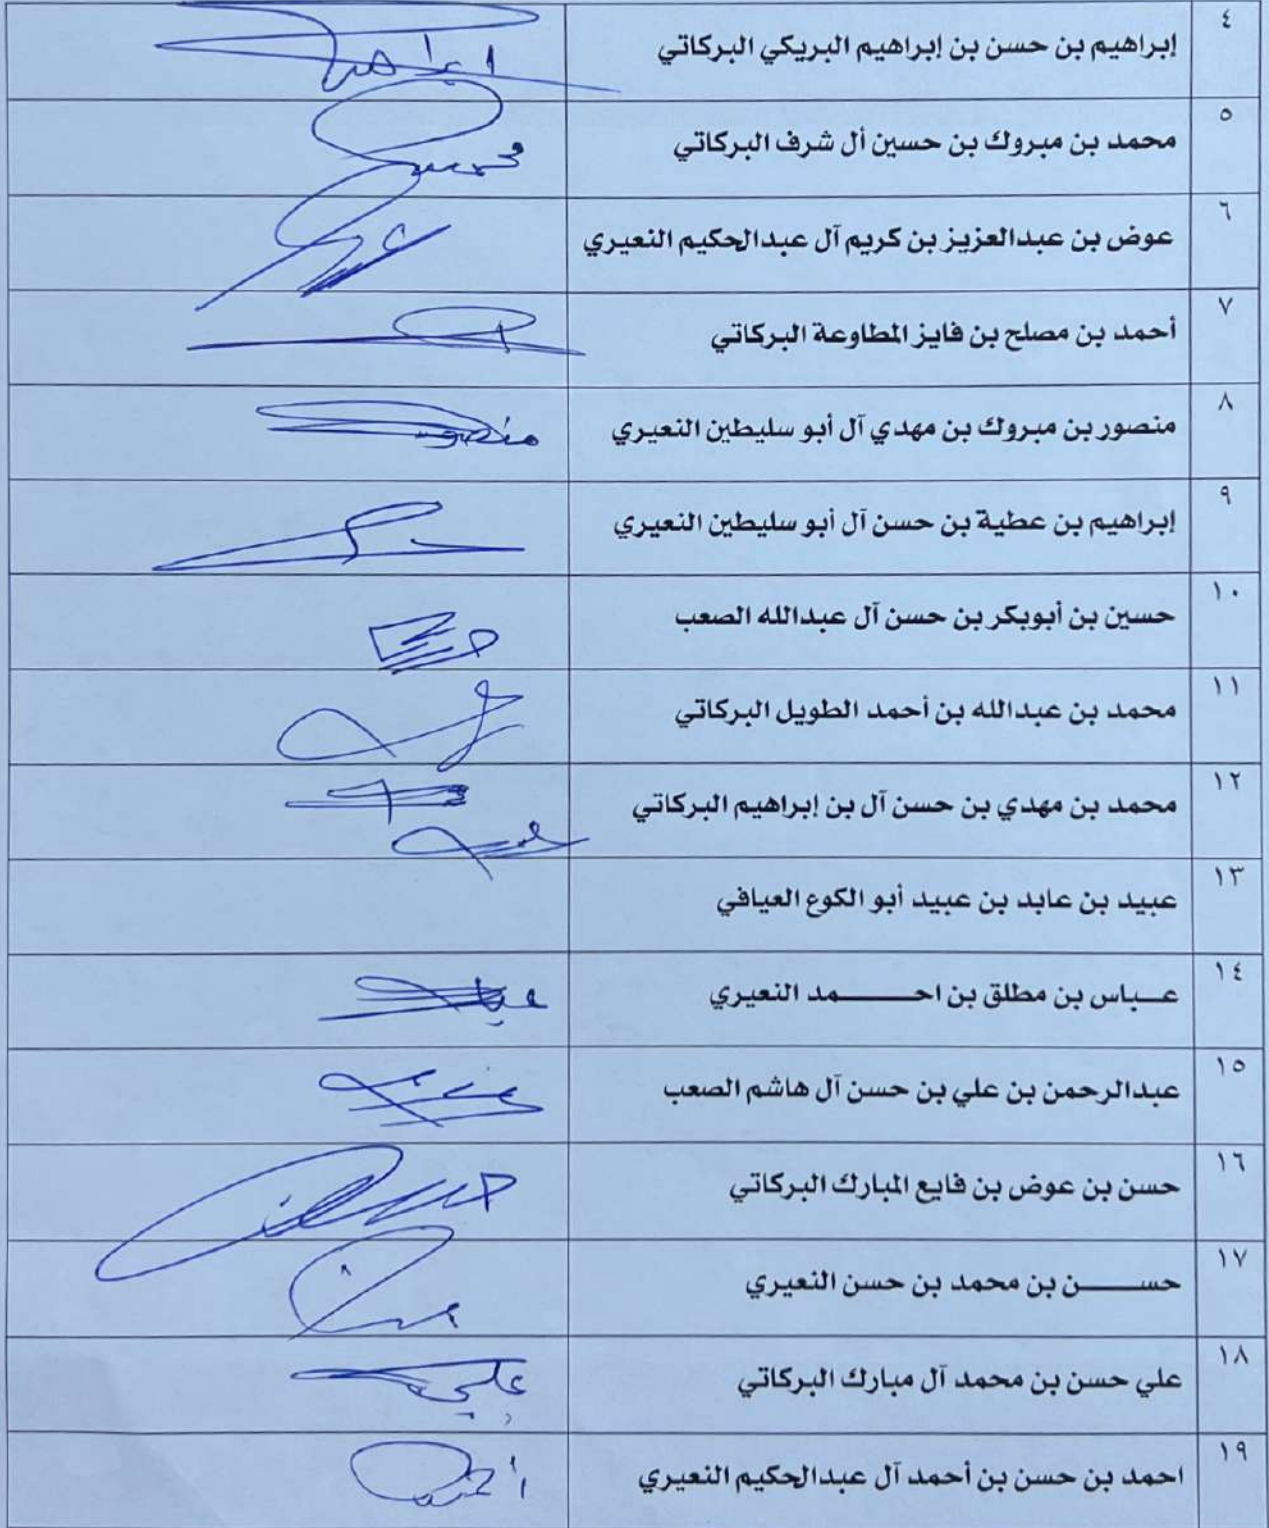 ٤ إبراهيم بن حسن بن إبراهيم البريكي البركاتي ابراهيم
٥ محمد بن مبروك بن حسين أل شرف البركاتي محمد
٦ عوض بن عبدالعزيز بن كريم آل عبدالحكيم النعيري
٧ أحمد بن مصلح بن فايز المطاوعة البركاتي
٨ منصور بن مبروك بن مهدي آل أبو سليطين النعيري منصور
٩ إبراهيم بن عطية بن حسن آل أبو سليطين النعيري
١٠ حسين بن أبوبكر بن حسن آل عبدالله الصعب
١١ محمد بن عبدالله بن أحمد الطويل البركاتي
١٢ محمد بن مهدي بن حسن آل بن إبراهيم البركاتي
١٣ عبيد بن عابد بن عبيد أبو الكوع العيافي
١٤ عـــباس بن مطلق بن احــــــــمد النعيري
١٥ عبدالرحمن بن علي بن حسن آل هاشم الصعب
١٦ حسن بن عوض بن فايع المبارك البركاتي
١٧ حســــــن بن محمد بن حسن النعيري
١٨ علي حسن بن محمد آل مبارك البركاتي علي
١٩ احمد بن حسن بن أحمد آل عبدالحكيم النعيري